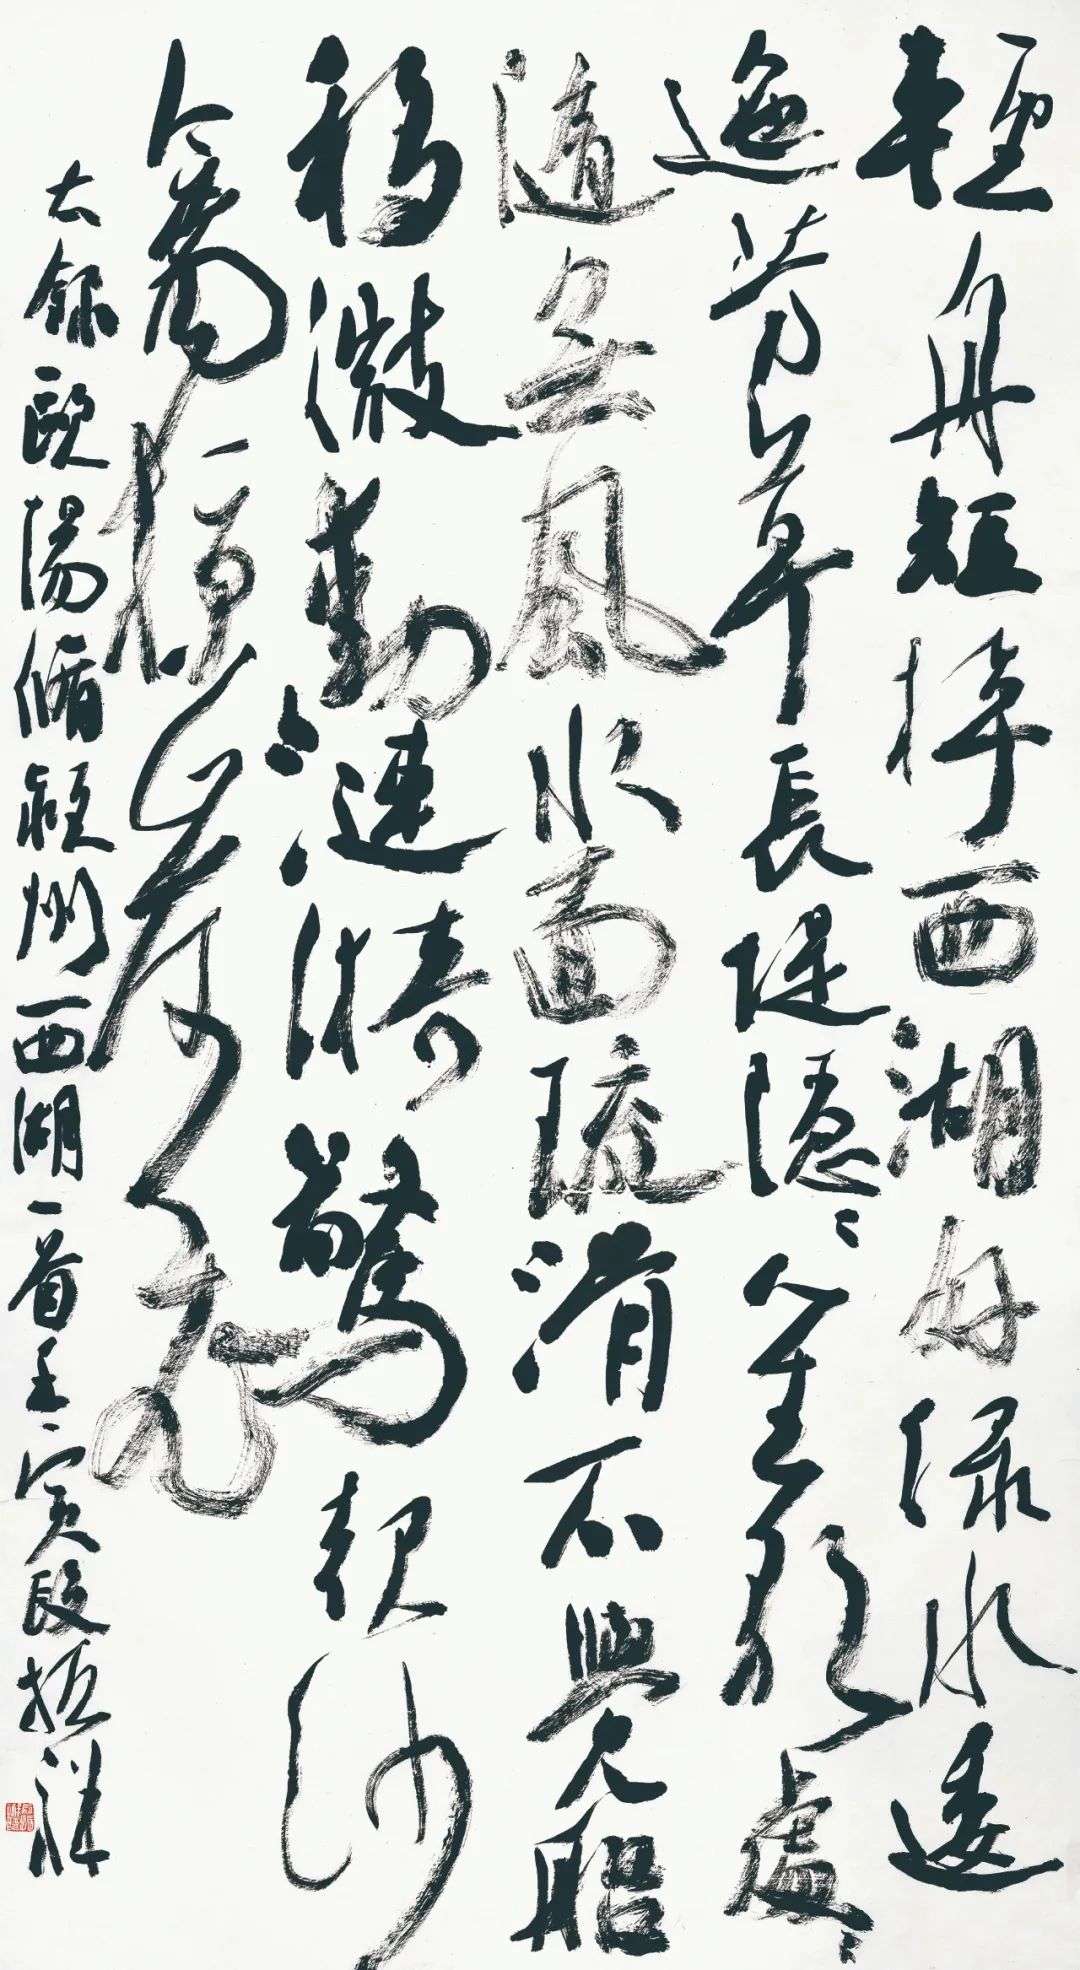 輕舟短棹西湖好綠水逶
迤芳草長隄隱々笙歌處々
隨無風水面琉滑不覺船
移微動漣漪驚起沙
禽掠岸飛
右錄歐陽脩潁州西湖一首壬寅段